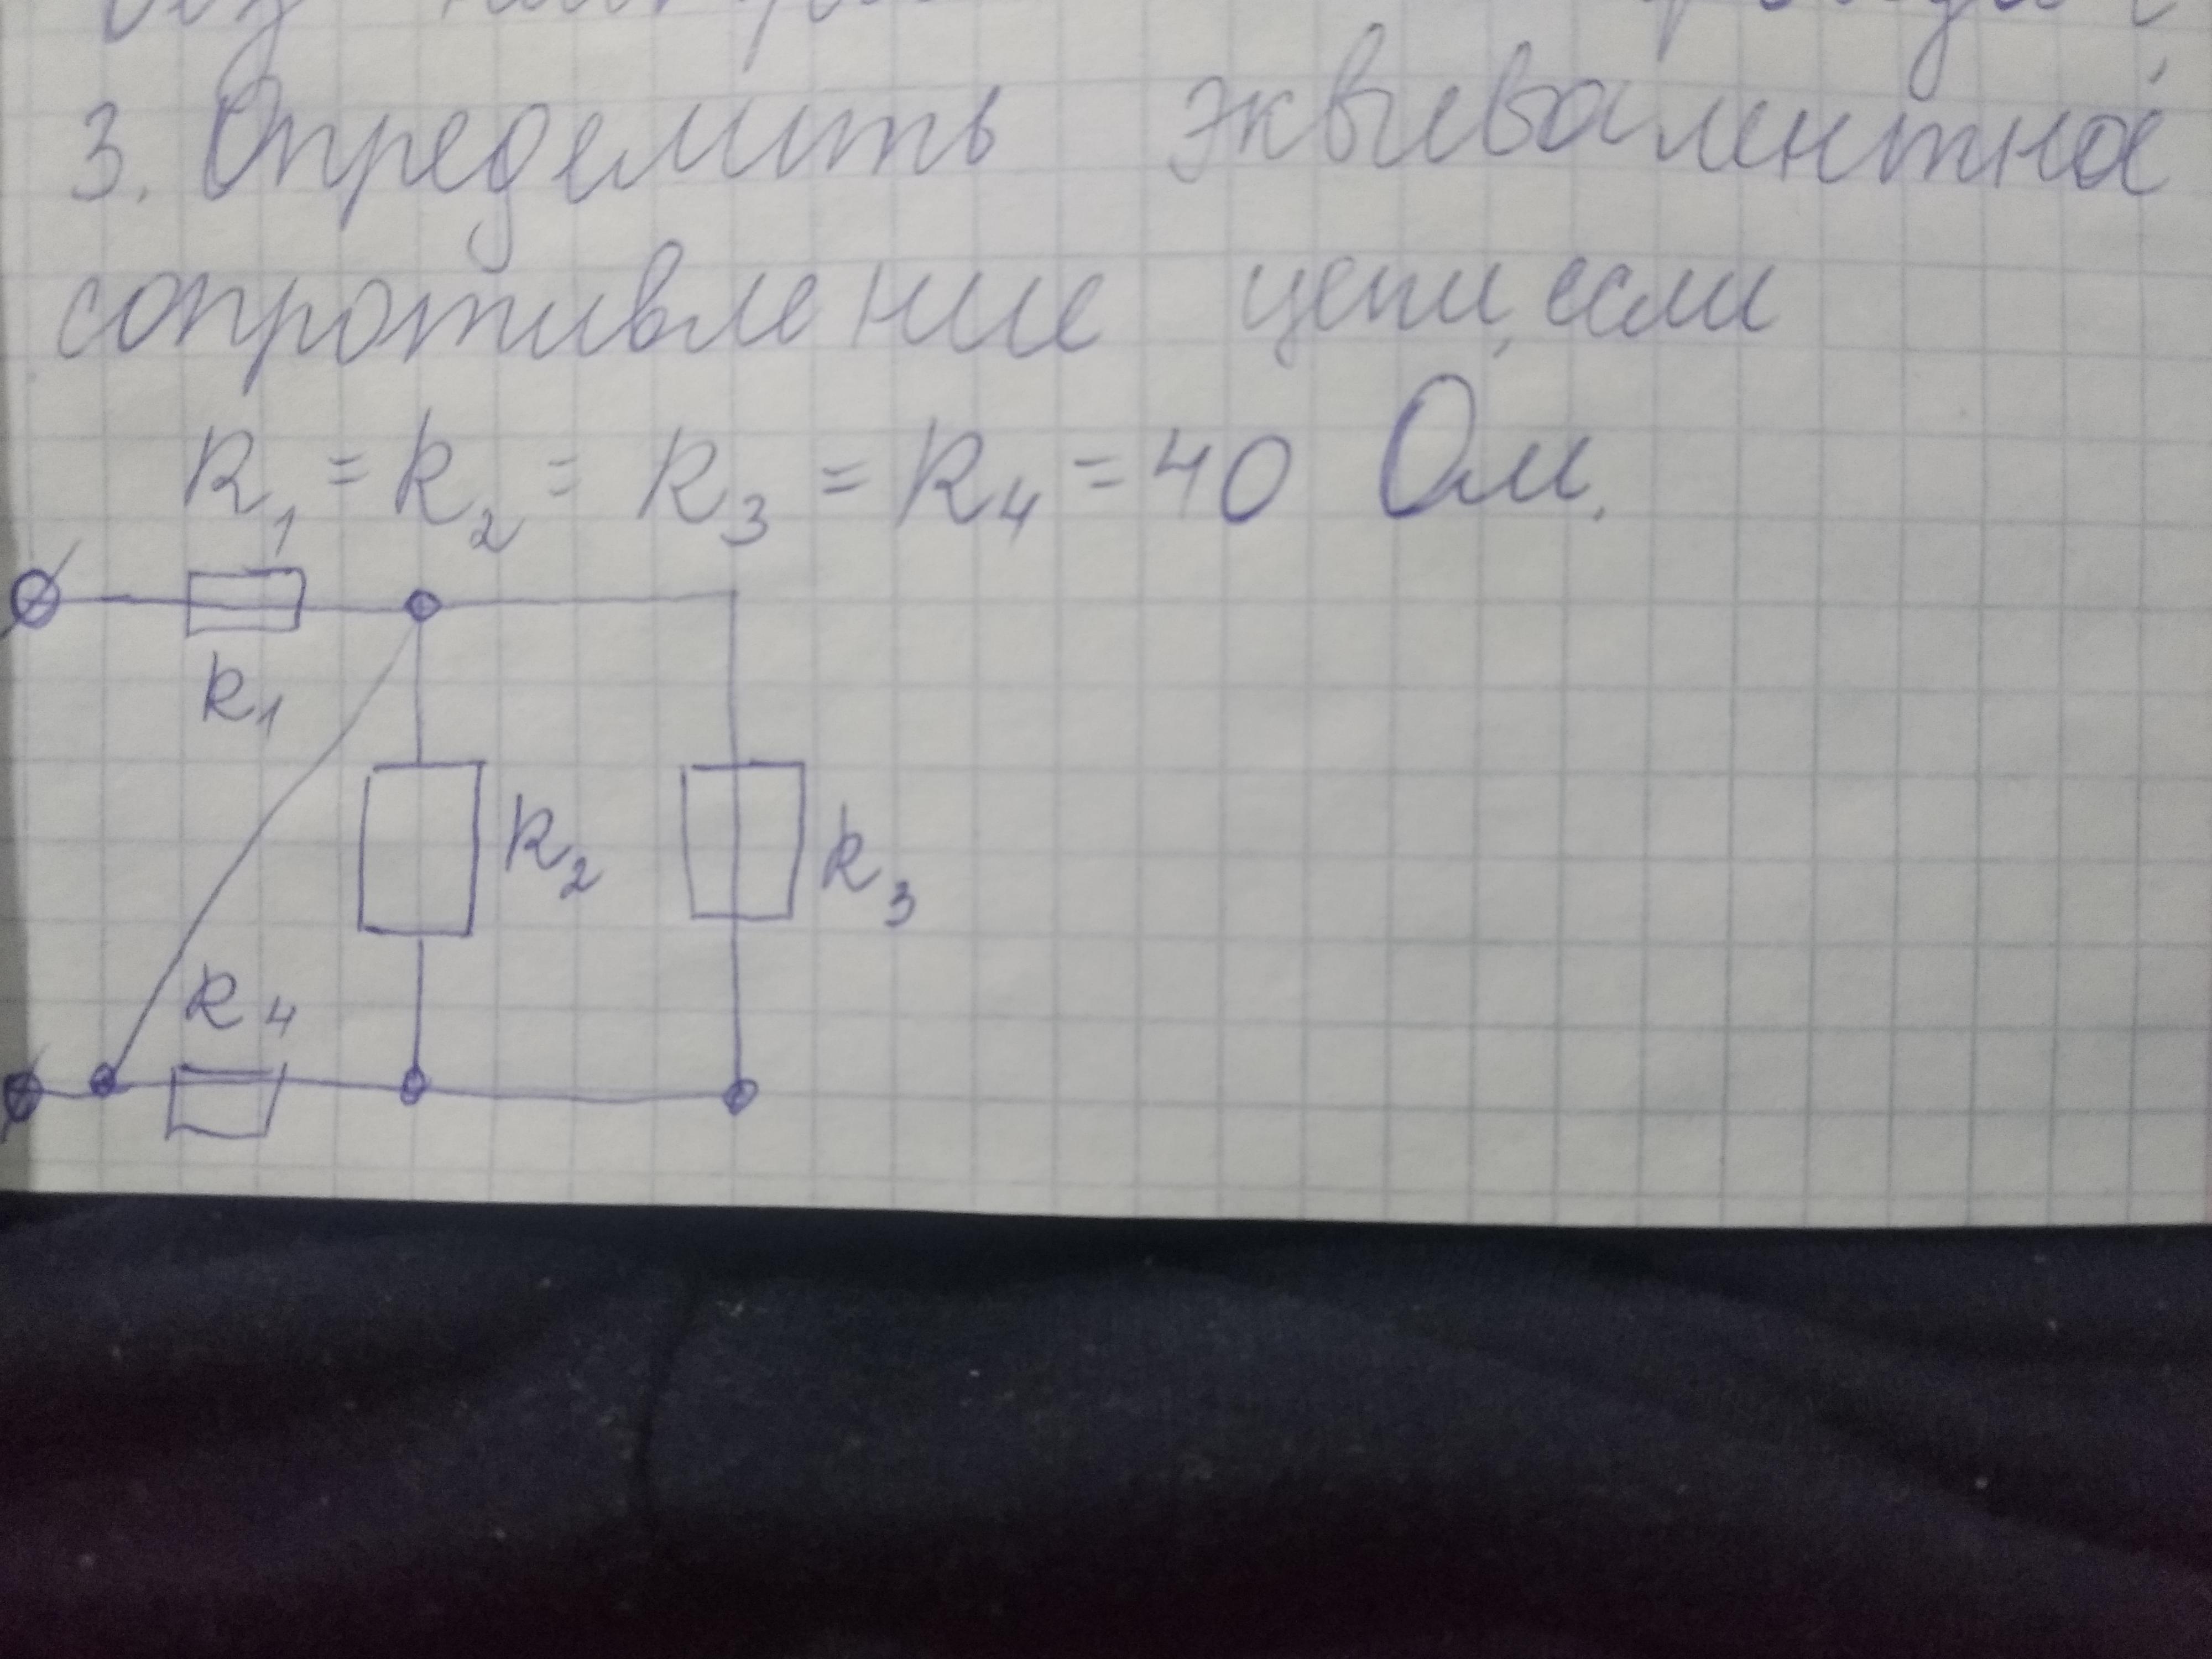 3. Определить эквивалентное
сопротивление цепи, если
R1 = R2 = R3 = R4 = 40 Ом.
R1
R2
R3
R4